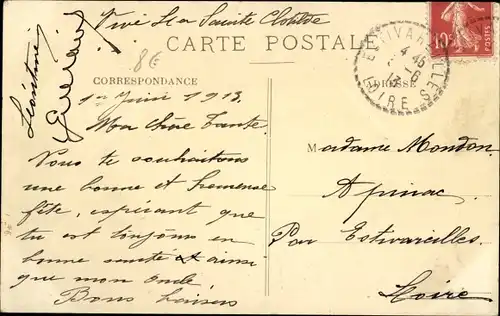 Vive La Sainte Clotilde
86
CARTE POSTALE
CORRESPONDANCE
ADRESSE
ESTIVAREILLES
4 45
6
LOIRE
10
POSTES
Léontine
1er Juin 1913.
Ma Chère Tante.
Nous te souhaitons
une bonne et heureuse
fête, espérant que
tu est toujours en
bonne santé et ainsi
que mon oncle
Bons baisers
Madame Mondon
Apinac
Par Estivareilles.
Loire